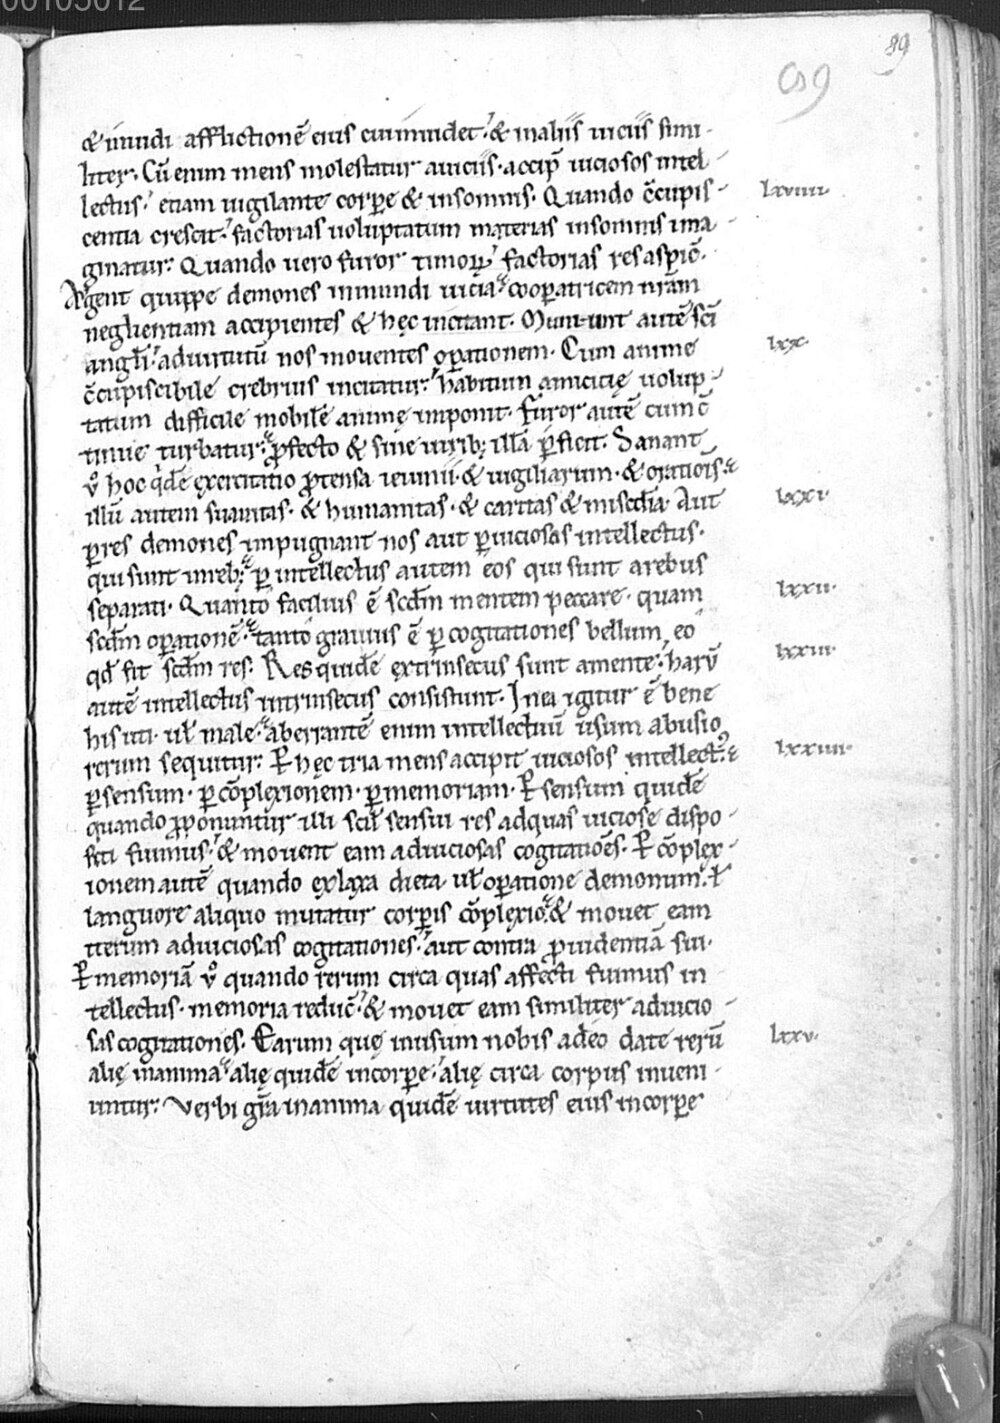 00105012
89
89
& inuidi afflictionē eius cui inuidet. & in aliis uiciis simi-
liter. Cū enim mens molestatur a uiciis. accip̄ uiciosos intel-
lectus. etiam uigilante corpore & insomnis. Quando c̄cupis-
lxviiii.
centia crescit. factorias uoluptatum materias insomnis ima-
ginatur. Quando uero furor timorꝝ factorias res aspic̄.
Agent quippe demones inmundi uicia. cooꝑatricem nr̄am
neglientiam accipientes & hęc incitant. Muniunt autē sc̄i
angl̄i. ad uirtutū nos mouentes oꝑationem. Cum anime
lxx.
c̄cupiscibile crebrius incitatur. habitum amicicię uolup-
tatum difficile mobile animę imponit. furor autē cum c̄
tinue turbatur. ꝓfecto & sine uirib; illā ꝑficit. Sanant
v̊ hoc qͥdē exercitatio ꝓtensa ieiunii. & uigiliarum. & oratiōis.
illū autem suauitas. & humanitas. & caritas & misc̄dia. Aut
lxxi.
ꝑ res demones impugnant nos aut ꝑ uiciosas intellectus.
qui sunt in reb; ꝑ intellectus autem eos qui sunt a rebus
separati. Quanto facilius ē scdm̄ mentem peccare. quam
lxxii.
scdm̄ oꝑationē. tanto grauius ē ꝑ cogitationes bellum, eo
qd̄ fit scdm̄ res. Res quidē extrinsecus sunt a mente. harū
lxxiii.
autē intellectus intrinsecus consistunt. In ea igitur ē bene
his uti. ul̄ male. aberrantē enim intellectuū usum abusio
rerum sequitur. Ꝑ hęc tria mens accipit uiciosos intellectꝰ.
lxxiiii.
ꝑ sensum. ꝑ cōplexionem. ꝑ memoriam. Ꝑ sensum quidē
quando ꝓponuntur illi scil̄ sensui res ad quas uiciose dispo-
siti fuimus. & mouent eam ad uiciosas cogitatiōes. Ꝑ cōplex-
ionem autē quando ex laxa dieta. ul̄ oꝑatione demonum. ł
languore aliquo mutatur corꝑis cōplexio. & mouet eam
iterum ad uiciosas cogitationes. aut contra ꝓuidentiā sui.
Ꝑ memoriā v̊ quando rerum circa quas affecti fuimus in
tellectus. memoria reduc̄. & mouet eam similiter ad uicio-
sas cogitationes. Earum quę in usum nobis a deo date rerū
lxxv.
alię in anima. alię quidē in corꝑe. alię circa corpus inueni-
untur. Verbi gr̄a in anima quidē uirtutes eius in corꝑe